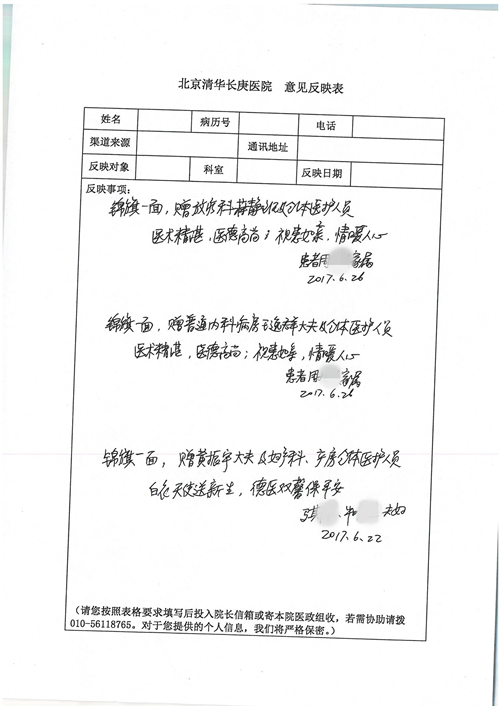 北京清华长庚医院 意见反映表
姓名 病历号 电话
渠道来源 通讯地址
反映对象 科室 反映日期
反映事项:
锦旗一面，赠放疗科 全体医护人员
医术精湛，医德高尚；视患如亲，情暖人心
患者周 家属
2017.6.26
锦旗一面，赠普通内科病房王 大夫及全体医护人员
医术精湛，医德高尚；视患如亲，情暖人心
患者周 家属
2017.6.26
锦旗一面，赠黄振宇大夫及妇产科、产房全体医护人员
白衣天使送新生，德医双馨保平安
夫妇
2017.6.22
(请您按照表格要求填写后投入院长信箱或寄本院医政组收，若需协助请拨
010-56118765。对于您提供的个人信息，我们将严格保密。)